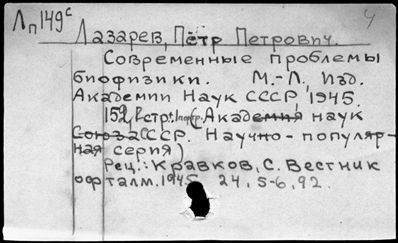 Лп149с
4
Лазарев, Пётр Петрович.
Современные проблемы
биофизики. М.-Л. Изд.
Академии Наук СССР, 1945.
152, 2 стр. 1 портр. (Академия наук
Союза ССР. Научно-популяр-
ная серия)
Рец.: Кравков, С. Вестник
офталм. 1945 24, 5-6, 92.